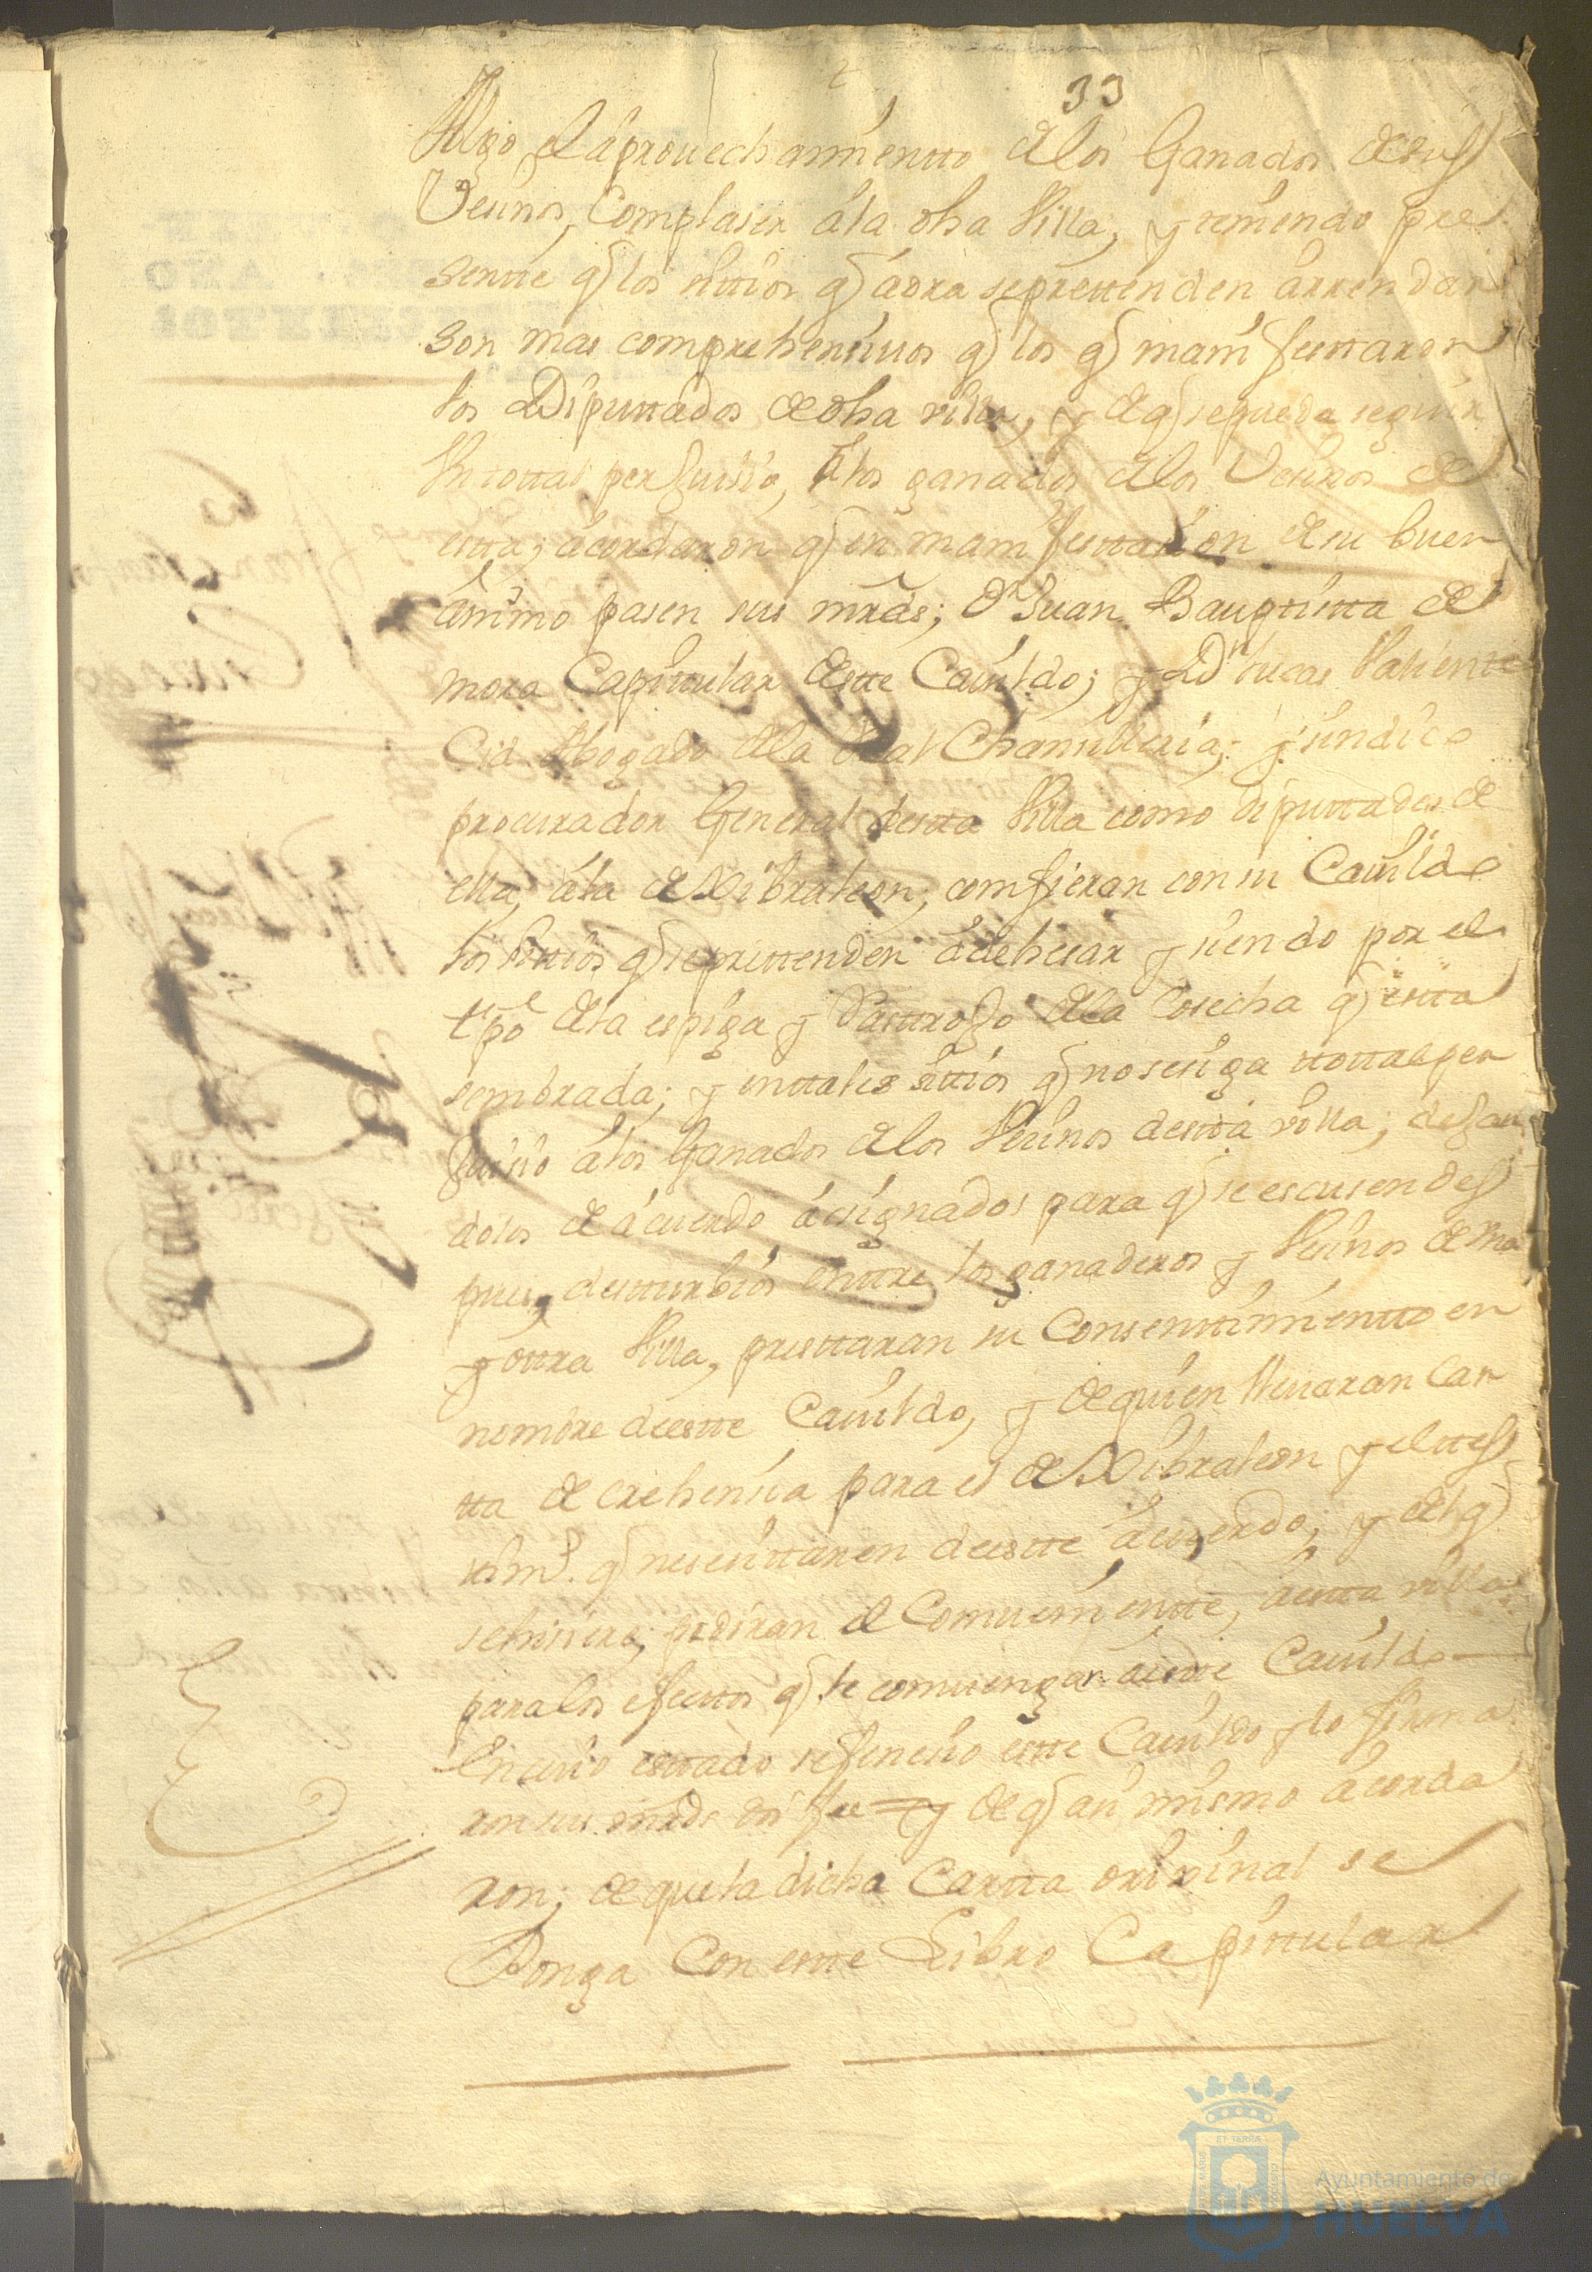 33
Algo el aprouechamientto de los Ganados de sus
Vesinos, Complaser á la dha Villa, y teniendo pre
sentte q los sittios q aora se prettenden arrendar
son mas comprehensiuos q los q manifesttaron
los Diputtados de dha villa, y de q se puede seguir
total perjuisio, a los ganados de los Vesinos de
estta; acordaron q en manifesttasion de su buen
ánimo pasen sus mrds; Dn Juan Baupttistta de
mora Capittular destte Cauildo; y Dn lucas Valientte
Cid Abogado de la Real Chansilleria; y sindico
procurador General destta Villa como diputtados de
ella, á la de Xibraleon; comfieran con su Cauildo
los sittios q se prettenden adehesar y siendo por el
tpo de la espiga y Rasttrojo de la Cosecha q estta
sembrada; y en ttales sittios q no se siga ttottal per
juisio á los Ganados de los Vesinos destta villa; dejan
dolos de ácuerdo ásignados para q se escusen des
pues, distturbios enttre los ganaderos y Vesinos de una
y ottra Villa, presttaran su Consenttimientto en
nombre de estte Cauildo, y de quien lleuaran Car
tta de crehensia para el de Xibraleon y el ttes
ttimo. q nesesittaren de estte ácuerdo; y de lo q
se hisiere, pediran el Comuenientte, á estta villa
para los efecttos q le comuengan á estte Cauildo
En cuio esttado se fenesio estte Cauildo y lo firma
ron sus mrds doi fee = y de q asi mismo ácorda
ron; de que la dicha Cartta orixinal se
Ponga Con estte Libro Capittular
Ayuntamiento de
HUELVA